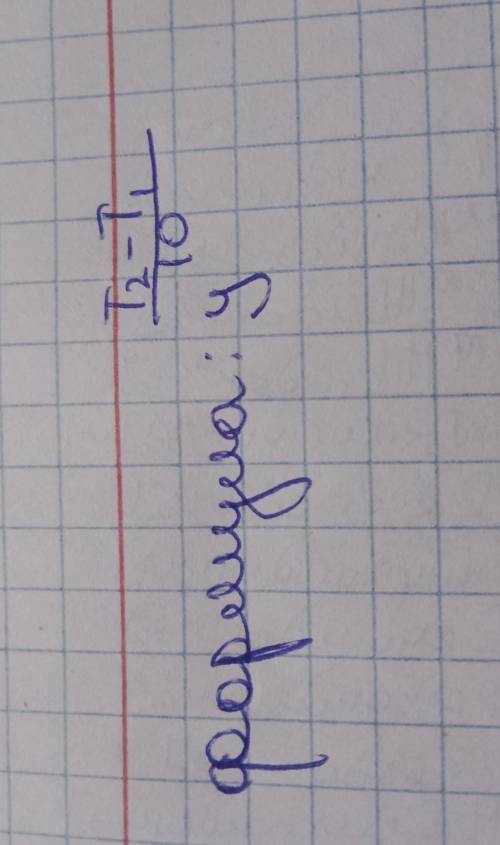 формула: y
T₂ - T₁
10